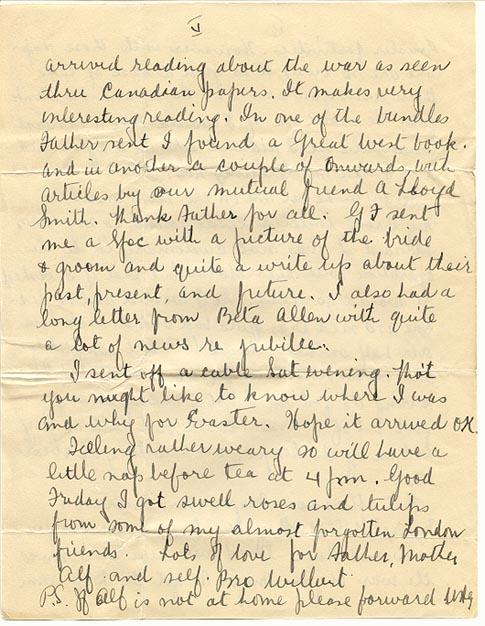 V
arrived reading about the war as seen
thru Canadian papers. It makes very
interesting reading. In one of the bundles
Father sent I found a Great West book.
and in another a couple of Onwards, with
articles by our mutual friend A Lloyd
Smith. Thank Father for all. G F sent
me a Spec with a picture of the bride
& groom and quite a write up about their
past, present, and future. I also had a
long letter from Beta Allen with quite
a lot of news re jubilee.
I sent off a cable Sat evening. Thot
you might like to know where I was
and why for Easter. Hope it arrived OK.
Feeling rather weary so will have a
little nap before tea at 4 pm. Good
Friday I got swell roses and tulips
from some of my almost forgotten London
friends. Lots of love for Father, Mother
Alf and self. Bro Wilbert
P.S. If Alf is not at home please forward